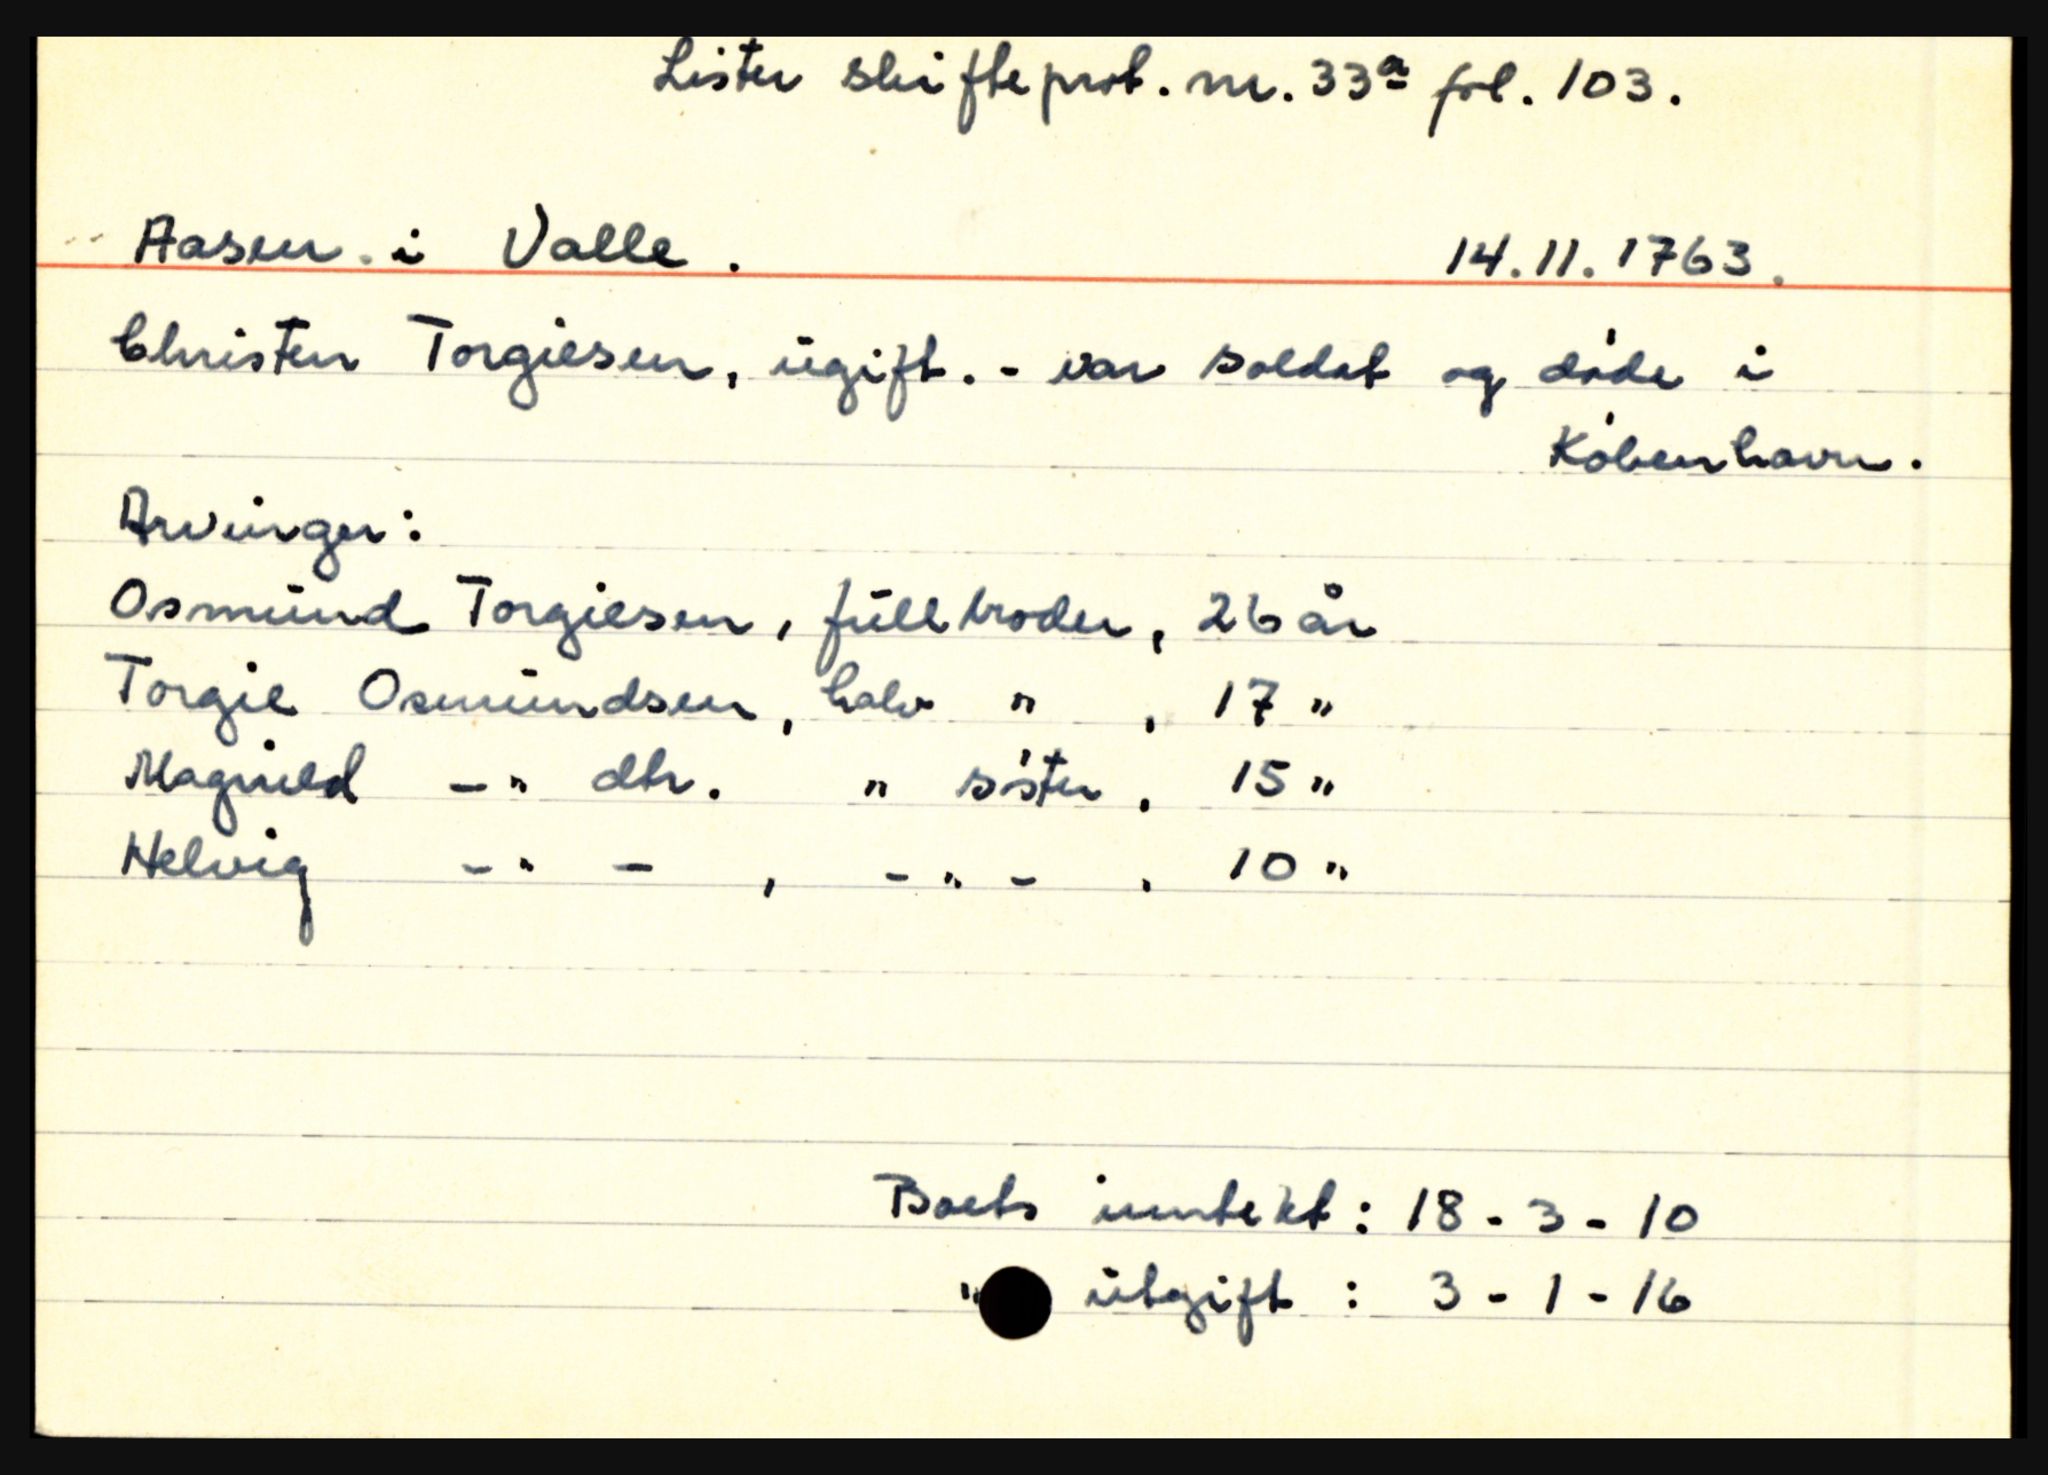 Lister skifteprot. nr. 33a fol. 103.
Aasen i Valle. 14.11.1763.
Christen Torgiesen, ugift. - var soldat og døde i
København.
Arvinger:
Osmund Torgiesen, fullbroder, 26 år
Torgie Osmundsen, halv " , 17 "
Magnild -" dtr. " søster, 15 "
Helvig -" - , -"- , 10 "
Boets inntekt: 18 - 3 - 10
" utgift : 3 - 1 - 16